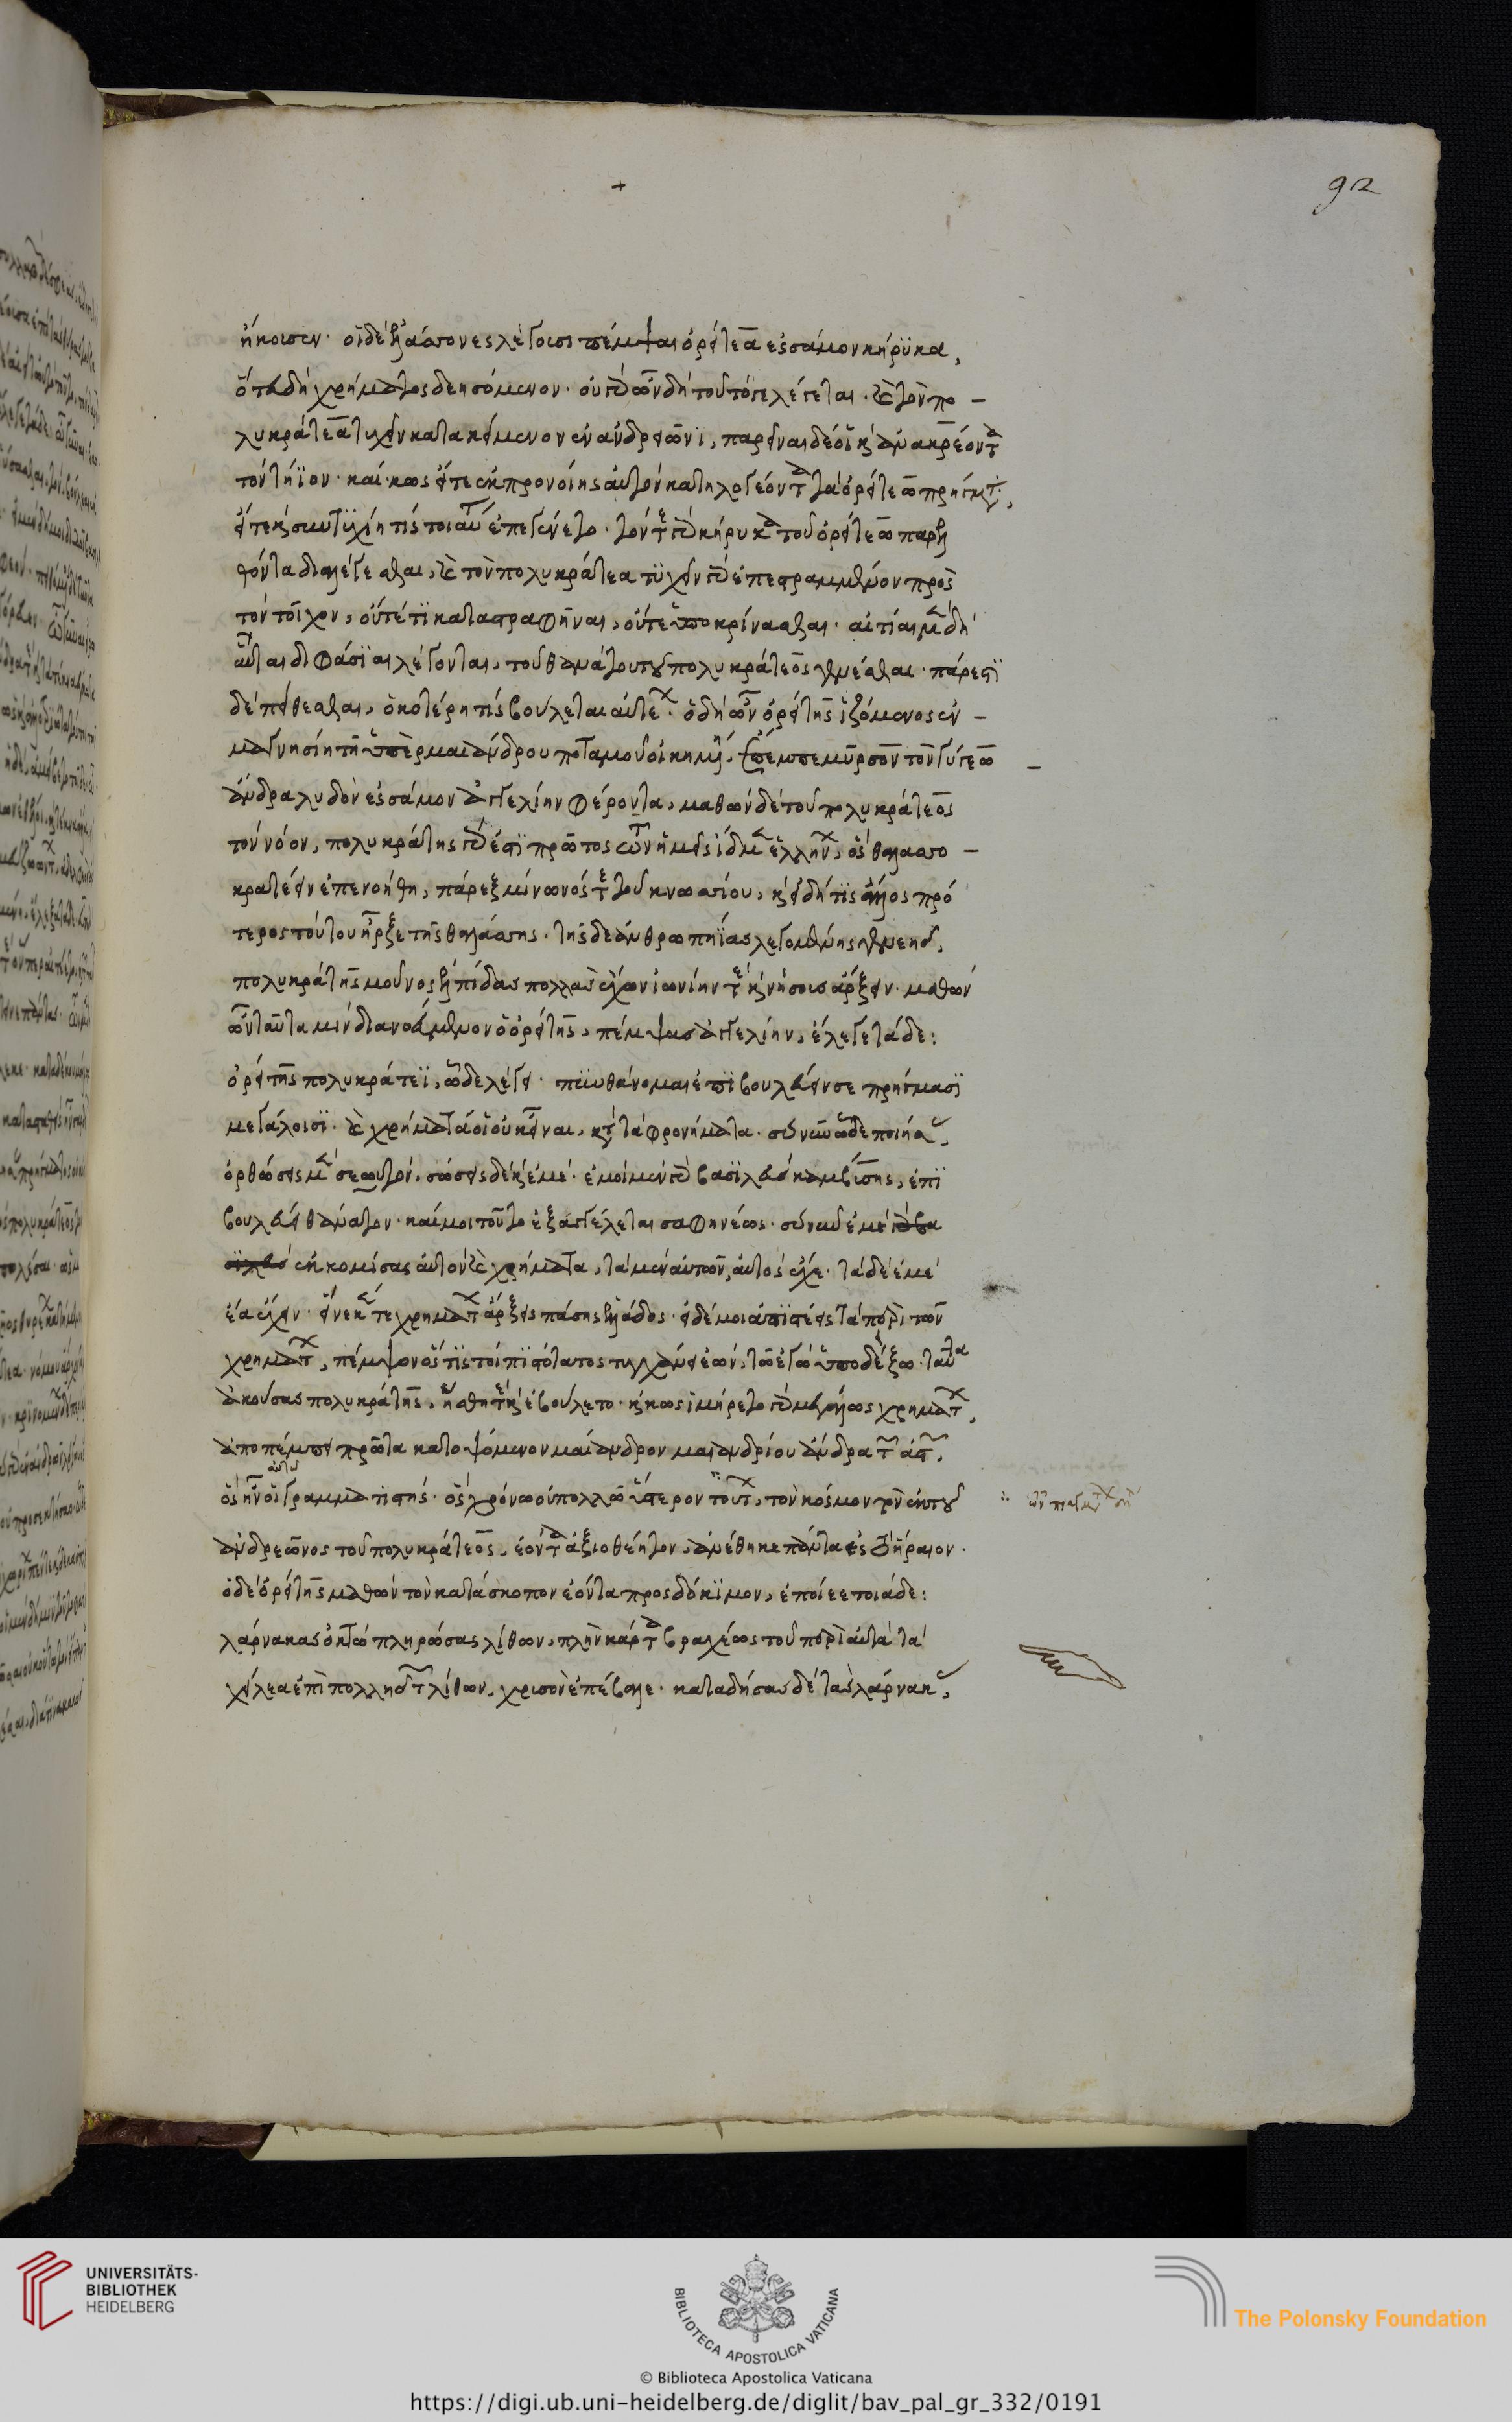 92
ἥκουσιν. οἱ δὲ ἐλάσσονες λέγουσι πέμψαι ὀροίτεα ἐς σάμον κήρυκα,
ὅτευ δὴ χρήματος δεησόμενον. οὐ γὰρ ὦν δὴ τοῦτό γε λέγεται. καὶ τὸν πο –
λυκράτεα τυχεῖν κατακείμενον ἐν ἀνδρεῶνι, παρεῖναι δέ οἱ καὶ ἀνακρέοντα
τὸν τήϊον. καί κως εἴτε ἐκ προνοίης αὐτὸν κατηλογέοντα τὰ ὀροίτεω πρήγματα,
εἴτε καὶ συντυχίη τίς τοιαύτη ἐπεγένετο. τόν τε γὰρ κήρυκα τοῦ ὀροίτεω παρελ
θόντα διαλέγεσθαι, καὶ τὸν πολυκράτεα τυχεῖν γὰρ ἐπεστραμμένον πρὸς
τὸν τοῖχον, οὔτέ τι καταστραφῆναι, οὔτε ὑποκρίνασθαι. αἰτίαι μὲν δὴ
αὗται διφάσιαι λέγονται, τοῦ θανάτου τοῦ πολυκράτεος γενέσθαι. πάρεστι
δὲ πείθεσθαι, ὁκοτέρη τίς βούλεται αὐτέων. ὁ δὴ ὦν ὀροίτης ἱζόμενος ἐν –
μαγνησίῃ τῇ ὑπὲρ μαιάνδρου ποταμοῦ οἰκημένῃ, ἔπεμπε μύρσον τὸν γύγεω –
ἄνδρα λυδὸν ἐς σάμον ἀγγελίην φέροντα, μαθὼν δὲ τοῦ πολυκράτεος
τὸν νόον, πολυκράτης γάρ ἐστι πρῶτος τῶν ἡμεῖς ἴδμεν ἑλλήνων, ὃς θαλασσο –
κρατέειν ἐπενοήθη, πάρεξ μίνωνός τε τοῦ κνωσσίου, καὶ εἰ δή τις ἄλλος πρό
τερος τούτου ἦρξε τῆς θαλάσσης. τῆς δὲ ἀνθρωπηίας λεγομένης γενεῆς,
πολυκράτης μοῦνος ἐλπίδας πολλὰς ἔχων ἰωνίην τε καὶ νήσους ἄρξειν. μαθὼν
ὦν ταῦτα μιν διανοεύμενον ὁ ὀροίτης, πέμψας ἀγγελίην, ἔλεγε τάδε:
ὀροίτης πολυκράτεϊ, ὧδε λέγει. πυνθάνομαι ἐπιβουλεύειν σε πρήγμασι
μεγάλοισι. καὶ χρήματά οἱ οὐκ εἶναι, κατὰ τὰ φρονήματα. σύ νυν ὧδε ποιήσας,
ὀρθώσεις μὲν σεωυτόν, σώσεις δὲ καὶ ἐμέ. ἐμοὶ μὲν γὰρ βασιλεὺς καμβύσης, ἐπι
βουλεύει θάνατον. καί μοι τοῦτο ἐξαγγέλεται σαφηνέως. σύ νυν ἐμὲ γὰρ βα
σιλεὺς ἐκκομίσας αὐτὸν καὶ χρήματα, τὰ μὲν αὐτῶν, αὐτὸς ἔχε. τὰ δὲ ἐμὲ
ἔα ἔχειν. εἵνεκέν τε χρημάτων ἄρξεις πάσης ἑλλάδος. εἰ δέ μοι ἀπιστέεις τὰ περὶ τῶν
χρημάτων, πέμψον ὅστις τοι πιστότατος τυγχάνει ἐών, τῷ ἐγὼ ὑποδέξω. ταῦτα
ἀκούσας πολυκράτης, ἥσθη τε καὶ ἐβούλετο. καί κως ἱμήρετο γὰρ μεγάλως χρημάτων,
ἀποπέμπει πρῶτα κατοψόμενον μαίανδρον μαιανδρίου ἄνδρα τῶν ἀστῶν,
αὐτοῦ
ὃς ἦν οἱ γραμματιστής. ὃς χρόνῳ οὐ πολλῷ ὕστερον τούτων, τὸν κόσμον τὸν ἐκ τοῦ
ἀνδρεῶνος τοῦ πολυκράτεος, ἐόντα ἀξιοθέητον, ἀνέθηκε πάντα ἐς τὸ ἥραιον.
ὁ δὲ ὀροίτης μαθὼν τὸν κατάσκοπον ἐόντα προσδόκιμον, ἐποίεε τοιάδε:
λάρνακας ὀκτὼ πληρώσας λίθων, πλὴν κάρτα βραχέως τοῦ περὶ αὐτὰ τὰ
χείλεα ἐπὶ πολλῆς τῶν λίθων, χρυσὸν ἐπέβαλε. καταδήσας δὲ τὰς λάρνακας,
UNIVERSITÄTS-
BIBLIOTHEK
HEIDELBERG
BIBLIOTECA APOSTOLICA VATICANA
The Polonsky Foundation
© Biblioteca Apostolica Vaticana
https://digi.ub.uni-heidelberg.de/diglit/bav_pal_gr_332/0191